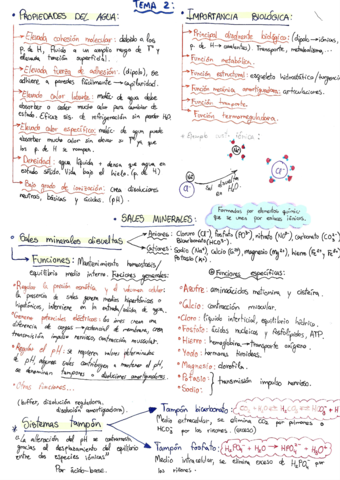 TEMA 2:
• PROPIEDADES DEL AGUA:
→ Elevada cohesión molecular: debido a los
p. de H, fluido a un amplio rango de Tª y
elevada tensión superficial.
→ Elevada fuerza de adhesión: (dipolo), se
adhiere a paredes fácilmente → capilaridad.
→ Elevado calor latente: molec de agua debe
absorber o ceder mucho calor para cambiar de
estado. Eficaz sis. de refrigeración sin perder H₂O.
→ Elevado calor específico: molec de agua puede
absorber mucho calor sin elevar su Tª ya que
los p. de H se rompen.
→ Densidad: agua líquida + densa que agua en
estado sólido. Vida bajo el hielo. (p. de H)
→ Bajo grado de ionización: crea disoluciones
neutras, básicas y ácidas. (pH).
• IMPORTANCIA BIOLÓGICA:
→ Principal disolvente biológico: (dipolo → iónicas,
p. de H → covalentes). Transporte, metabolismo...
→ Función metabólica.
→ Función estructural: esqueleto hidrostático/turgencia
→ Función mecánica amortiguadora: articulaciones.
→ Función transporte.
→ Función termorreguladora.
• Ejemplo iónica:
Na⁺
Cl⁻
al disolver
en
H₂O.
Na⁺
Cl⁻
• SALES MINERALES:
Formadas por elementos químicos
que se unen por enlaces iónicos.
• Sales minerales disueltas
→ Aniones: Cloruro (Cl⁻), fosfato (PO⁴⁻), nitrato (NO₃⁻), carbonato (CO₃²⁻)
Bicarbonato (HCO₃⁻).
→ Cationes: Sodio (Na⁺), Calcio (Ca²⁺), magnesio (Mg²⁺), hierro (Fe²⁺, Fe³⁺)
Potasio (K⁺).
→ Funciones: Mantenimiento homeostasis/
equilibrio medio interno. Funciones generales:
• Regular la presión osmótica y el volumen celular:
la presencia de sales genera medios hipertónicos o
hipotónicos, interviene en la entrada/salida de agua.
• Generar potenciales eléctricos: los iones crean una
diferencia de cargas → potencial de membrana, crea
transmisión impulso nervioso, contracción muscular.
• Regular el pH: se requieren valores determinados
de pH, algunas sales contribuyen a mantener el pH,
se denominan tampones o disoluciones amortiguadoras.
• Otras funciones...
Funciones específicas:
• Azufre: aminoácidos metionina y cisteína.
• Calcio: contracción muscular.
• Cloro: líquido intersticial, equilibrio hídrico.
• Fosfato: ácidos nucleicos y fosfolípidos, ATP.
• Hierro: hemoglobina → transporte oxígeno.
• Yodo: hormonas tiroideas.
• Magnesio: clorofila.
• Potasio:
• Sodio:
transmisión impulso nervioso.
(buffer, disolución reguladora,
disolución amortiguadora)
* Sistemas tampón
"la alteración del pH se contrarresta
gracias al desplazamiento del equilibrio
entre dos especies iónicas"
Par ácido-base.
→ Tampón bicarbonato: CO₂ + H₂O ⇌ H₂CO₃ ⇌ HCO₃⁻ + H⁺
Medio extracelular, se elimina CO₂ por pulmones o
HCO₃⁻ por los riñones. (exceso)
→ Tampón fosfato: H₂PO₄⁻ + H₂O ⟶ HPO₄²⁻ + H⁺
Medio intracelular, se elimina exceso de H₂PO₄⁻ por
los riñones.